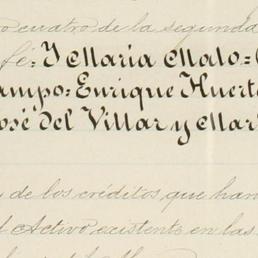 o cuatro de la segunda
fé: Y Maria Malo=
ampo: Enrique Huert
osé del Villar y Mar
y de los créditos que han
l Activo existente en las